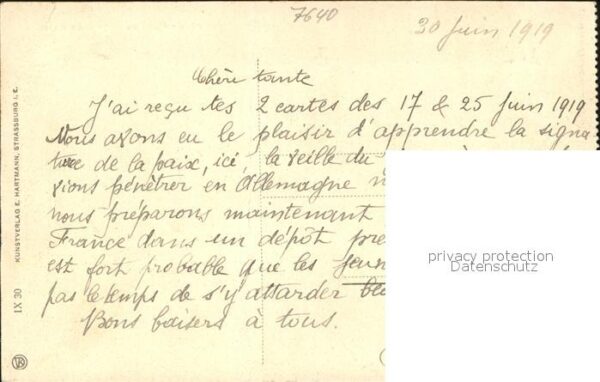 7640
30 Juin 1919
Chère tante
J'ai reçu tes 2 cartes des 17 & 25 Juin 1919
Nous avons eu le plaisir d'apprendre la signa-
ture de la paix, ici, la veille du
vions pénétrer en Allemagne
nous préparons maintenant
France dans un dépôt
est fort probable que les
pas le temps de s'y attarder
Bons baisers à tous.
privacy protection
Datenschutz
KUNSTVERLAG E. HARTMANN, STRASSBURG I. E.
IX 30